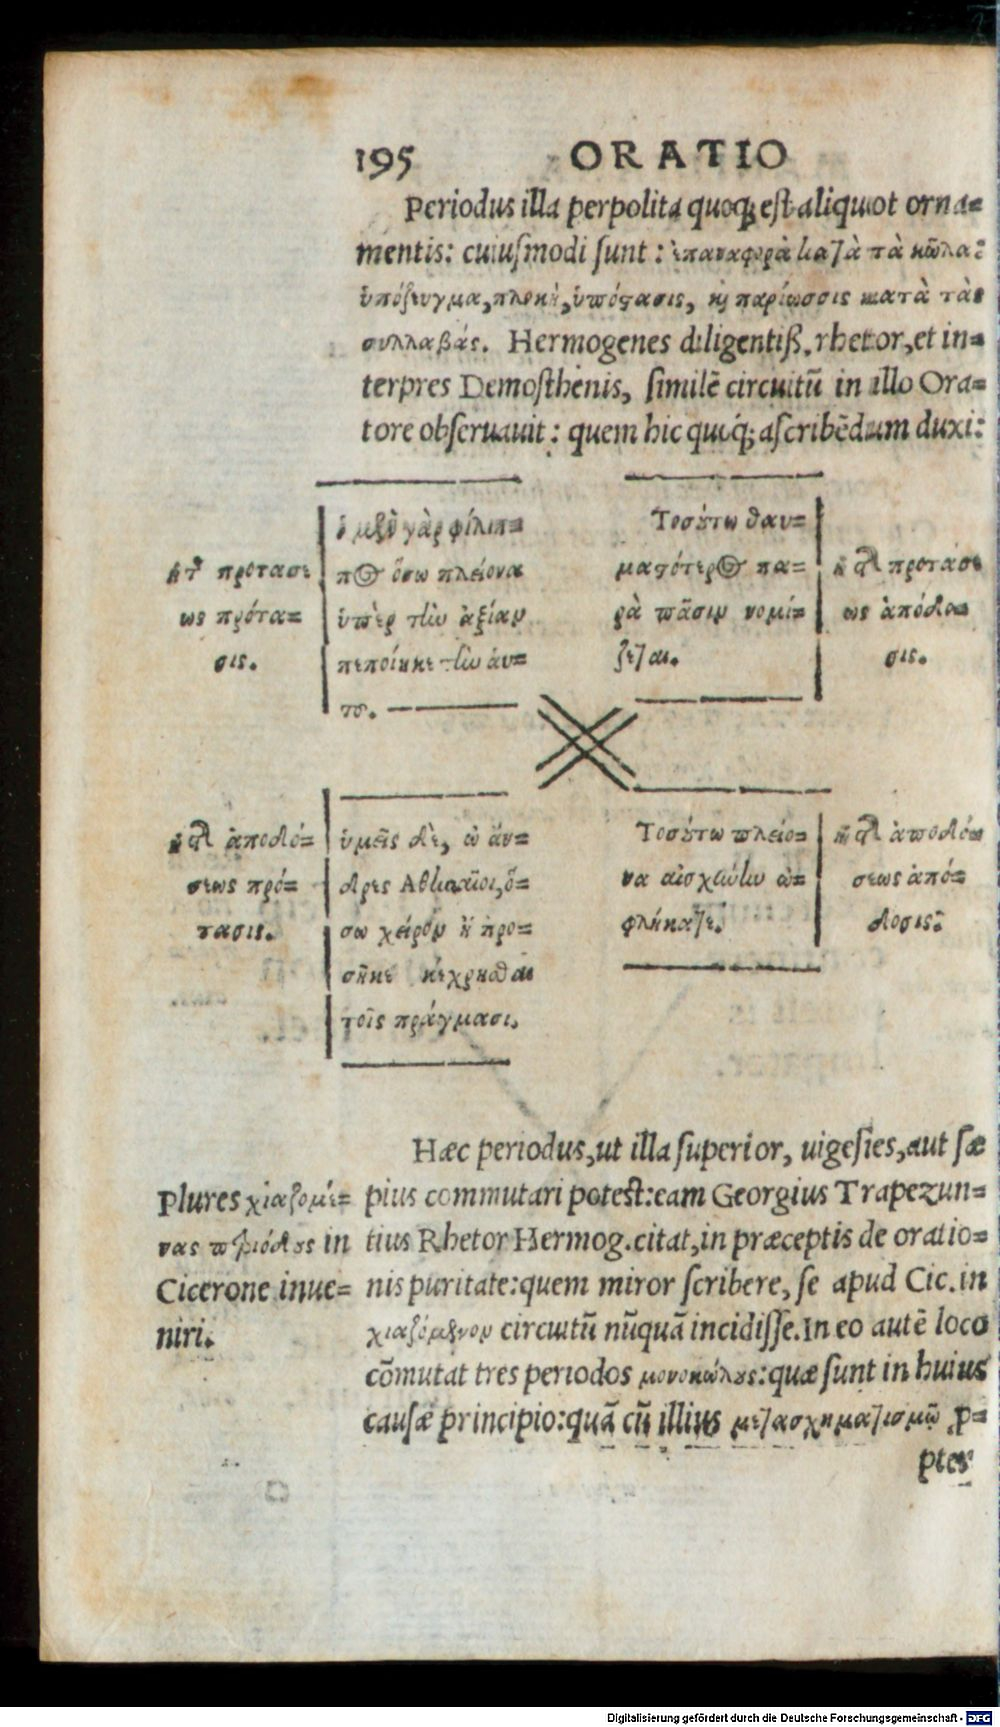 195 ORATIO
Periodus illa perpolita quoq; est aliquot orna=
mentis: cuiusmodi sunt: ἐπαναφορὰ κατὰ τὰ κῶλα:
ὑπόζευγμα, πλοκὴ, ὑπόστασις, καὶ παρίωσσις κατὰ τὰς
συλλαβάς. Hermogenes diligentiß. rhetor, et in=
terpres Demosthenis, similē circuitū in illo Ora=
tore obseruauit: quem hic quoq; ascribēdum duxi:
ὁ μὲν γὰρ φίλιπ=
πος ὅσω πλείονα
ὑπὲρ τὴν ἀξίαν
πεποίηκε τὴν ἁυ=
τȣ.
ἡ τ προτασε
ως πρότα=
σις.
Τοσȣ́τω θαυ=
μαστότερος πα=
ρὰ πᾶσιν νομί=
ζεται.
ἡ τῆς προτάσε
ως ἀπόδο=
σις.
ἡ τῆς ἀποδό=
σεως πρό=
τασις.
ὑμεῖς δὲ, ὦ ἄν=
δρες Ἀθηναῖοι, ὅ=
σω χεῖρον ἢ προ=
σῆκε κέχρησθαι
τοῖς πράγμασι,
Τοσȣ́τω πλείο=
να αἰσχύνην ὠ=
φλήκατε.
ἡ τῆς ἀποδό=
σεως ἀπό=
δοσις:
Hæc periodus, ut illa superior, uigesies, aut sæ
pius commutari potest: eam Georgius Trapezun=
tius Rhetor Hermog. citat, in præceptis de oratio=
nis puritate: quem miror scribere, se apud Cic. in
χιαζόμενον circuitū nūquā incidisse. In eo autē loco
cōmutat tres periodos μονοκώλȣς: quæ sunt in huius
causæ principio: quā cū illius μετασχηματισμῶ, ꝓ=
Plures χιαζομέ=
νας περιόδȣς in
Cicerone inue=
niri.
pter
Digitalisierung gefördert durch die Deutsche Forschungsgemeinschaft - DFG